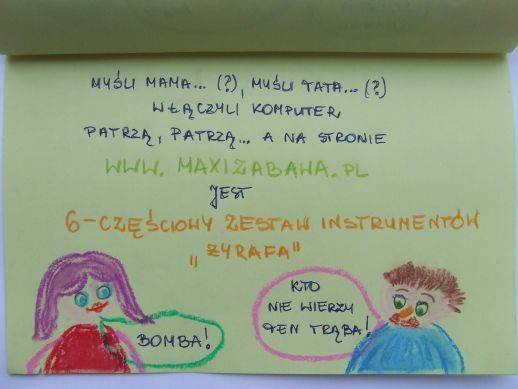 MYŚLI MAMA... (?), MYŚLI TATA... (?)
WŁĄCZYLI KOMPUTER
PATRZĄ, PATRZĄ... A NA STRONIE
WWW. MAXIZABAWA.PL
JEST
6-CZĘŚCIOWY ZESTAW INSTRUMENTÓW
„ŻYRAFA"
BOMBA!
KTO
NIE WIERZY
TEN TRĄBA!